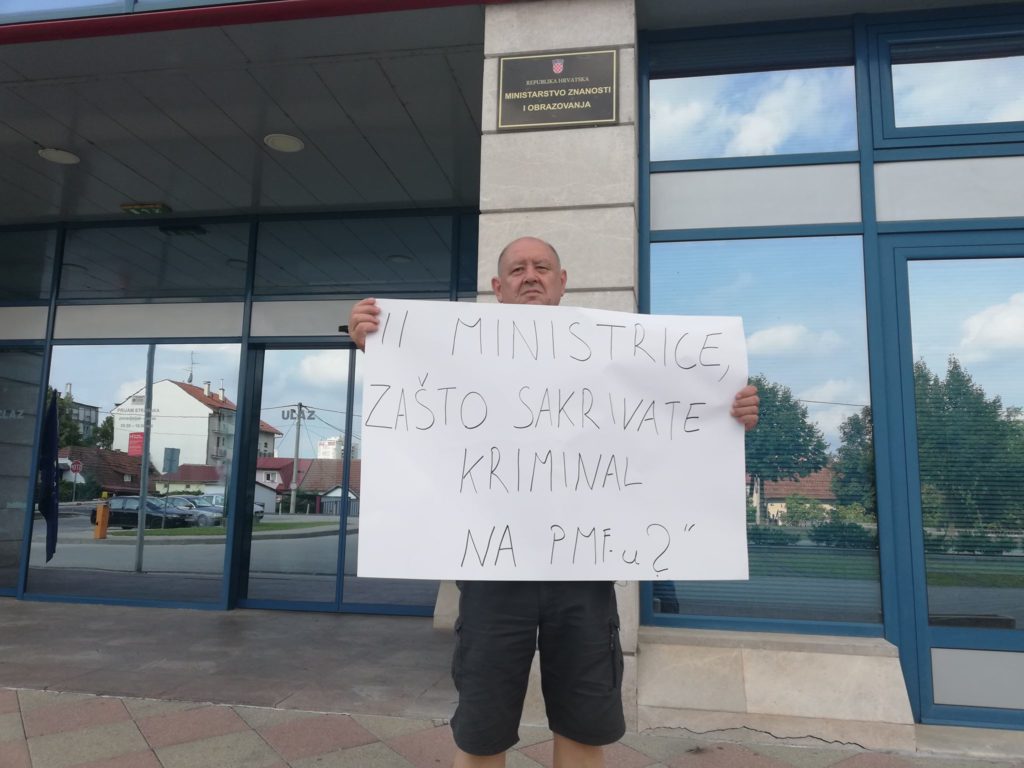 REPUBLIKA HRVATSKA
MINISTARSTVO ZNANOSTI
I OBRAZOVANJA
ULAZ
" MINISTRICE,
ZAŠTO SAKRIVATE
KRIMINAL
NA PMF-u?"